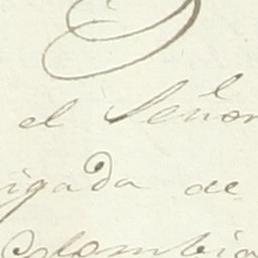 el Señor
igada de
Colombia